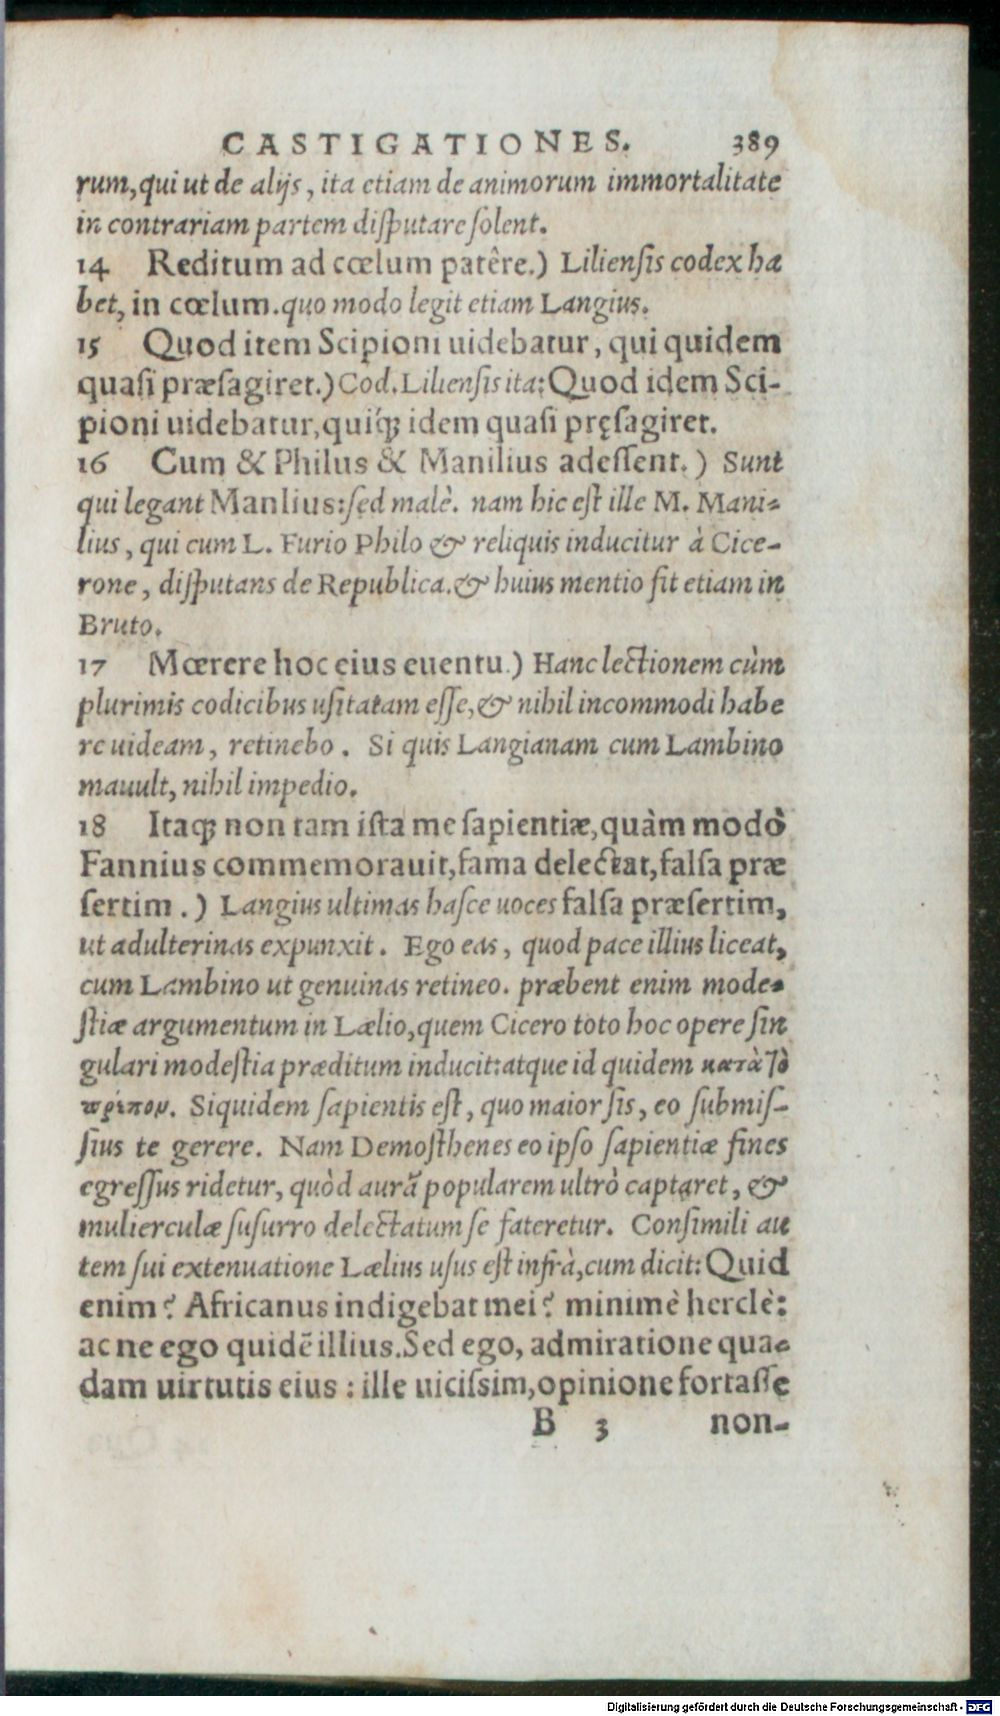 CASTIGATIONES. 389
rum, qui ut de alijs, ita etiam de animorum immortalitate
in contrariam partem disputare solent.
14 Reditum ad cœlum patêre.) Liliensis codex ha
bet, in cœlum. quo modo legit etiam Langius.
15 Quod item Scipioni uidebatur, qui quidem
quasi præsagiret.) Cod. Liliensis ita: Quod idem Sci-
pioni uidebatur, quíq; idem quasi pręsagiret.
16 Cum & Philus & Manilius adessent.) Sunt
qui legant Manlius: sed malè. nam hic est ille M. Mani-
lius, qui cum L. Furio Philo & reliquis inducitur à Cice-
rone, disputans de Republica. & huius mentio fit etiam in
Bruto.
17 Mœrere hoc eius euentu.) Hanc lectionem cùm
plurimis codicibus usitatam esse, & nihil incommodi habe
re uideam, retinebo. Si quis Langianam cum Lambino
mauult, nihil impedio.
18 Itaq; non tam ista me sapientiæ, quàm modò
Fannius commemorauit, fama delectat, falsa præ
sertim.) Langius ultimas hasce uoces falsa præsertim,
ut adulterinas expunxit. Ego eas, quod pace illius liceat,
cum Lambino ut genuinas retineo. præbent enim mode-
stiæ argumentum in Lælio, quem Cicero toto hoc opere sin
gulari modestia præditum inducit: atque id quidem κατὰ τὸ
πρέπον. Siquidem sapientis est, quo maior sis, eo submis-
sius te gerere. Nam Demosthenes eo ipso sapientiæ fines
egressus ridetur, quòd aurã popularem ultrò captaret, &
mulierculæ susurro delectatum se fateretur. Consimili au
tem sui extenuatione Lælius usus est infrà, cum dicit: Quid
enim? Africanus indigebat mei? minimè herclè:
ac ne ego quidẽ illius. Sed ego, admiratione qua-
dam uirtutis eius: ille uicissim, opinione fortasse
B 3 non-
Digitalisierung gefördert durch die Deutsche Forschungsgemeinschaft - DFG